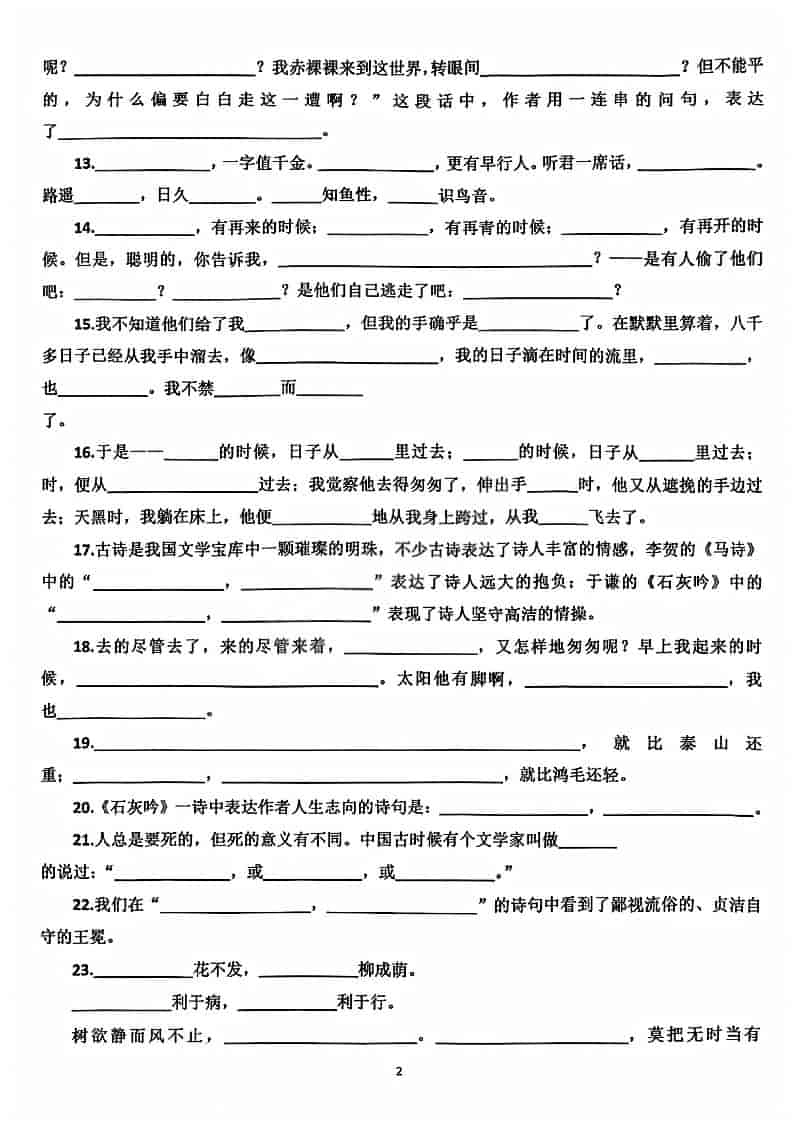 呢？____________________？我赤裸裸来到这世界，转眼间______________________？但不能平
的，为什么偏要白白走这一遭啊？”这段话中，作者用一连串的问句，表达
了____________________________。
13.____________，一字值千金。____________，更有早行人。听君一席话，____________。
路遥_______，日久_______。_____知鱼性，_____识鸟音。
14.____________，有再来的时候；__________，有再青的时候；__________，有再开的时
候。但是，聪明的，你告诉我，__________________________________？——是有人偷了他们
吧：_________？___________？是他们自己逃走了吧：____________？
15.我不知道他们给了我__________，但我的手确乎是__________了。在默默里算着，八千
多日子已经从我手中溜去，像__________________，我的日子滴在时间的流里，__________，
也_________。我不禁_______而_______
了。
16.于是——______的时候，日子从______里过去；_____的时候，日子从______里过去；
时，便从________________过去；我觉察他去得匆匆了，伸出手_____时，他又从遮挽的手边过
去；天黑时，我躺在床上，他便__________地从我身上跨过，从我_____飞去了。
17.古诗是我国文学宝库中一颗璀璨的明珠，不少古诗表达了诗人丰富的情感，李贺的《马诗》
中的“______________，______________”表达了诗人远大的抱负；于谦的《石灰吟》中的
“________________，______________”表现了诗人坚守高洁的情操。
18.去的尽管去了，来的尽管来着，______________，又怎样地匆匆呢？早上我起来的时
候，______________________________。太阳他有脚啊，____________________，我
也_______________。
19.________________________________________________，就比泰山还
重；_____________，_________________________，就比鸿毛还轻。
20.《石灰吟》一诗中表达作者人生志向的诗句是：_______________，_______________。
21.人总是要死的，但死的意义有不同。中国古时候有个文学家叫做______
的说过：“____________，或__________，或__________。”
22.我们在“_______________，_______________”的诗句中看到了鄙视流俗的、贞洁自
守的王冕。
23.__________花不发，__________柳成荫。
__________利于病，__________利于行。
树欲静而风不止，____________________。____________________，莫把无时当有
2